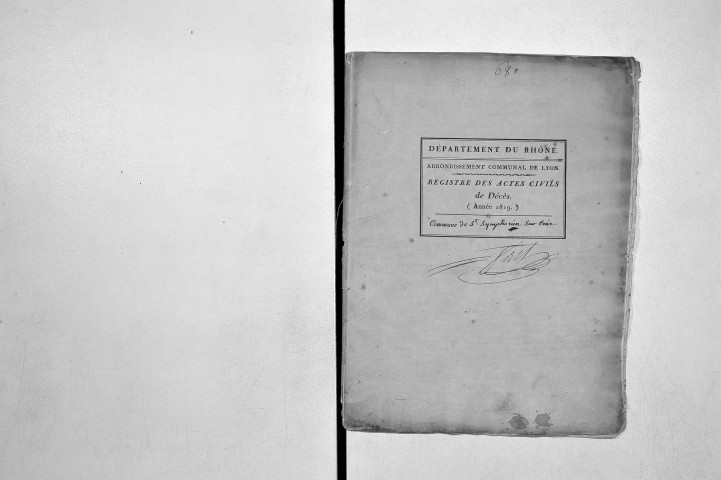 68
DÉPARTEMENT DU RHÔNE.
ARRONDISSEMENT COMMUNAL DE LYON
REGISTRE DES ACTES CIVILS
de Décès.
( Année 1819. )
Commune de St. Symphorien sur Coise